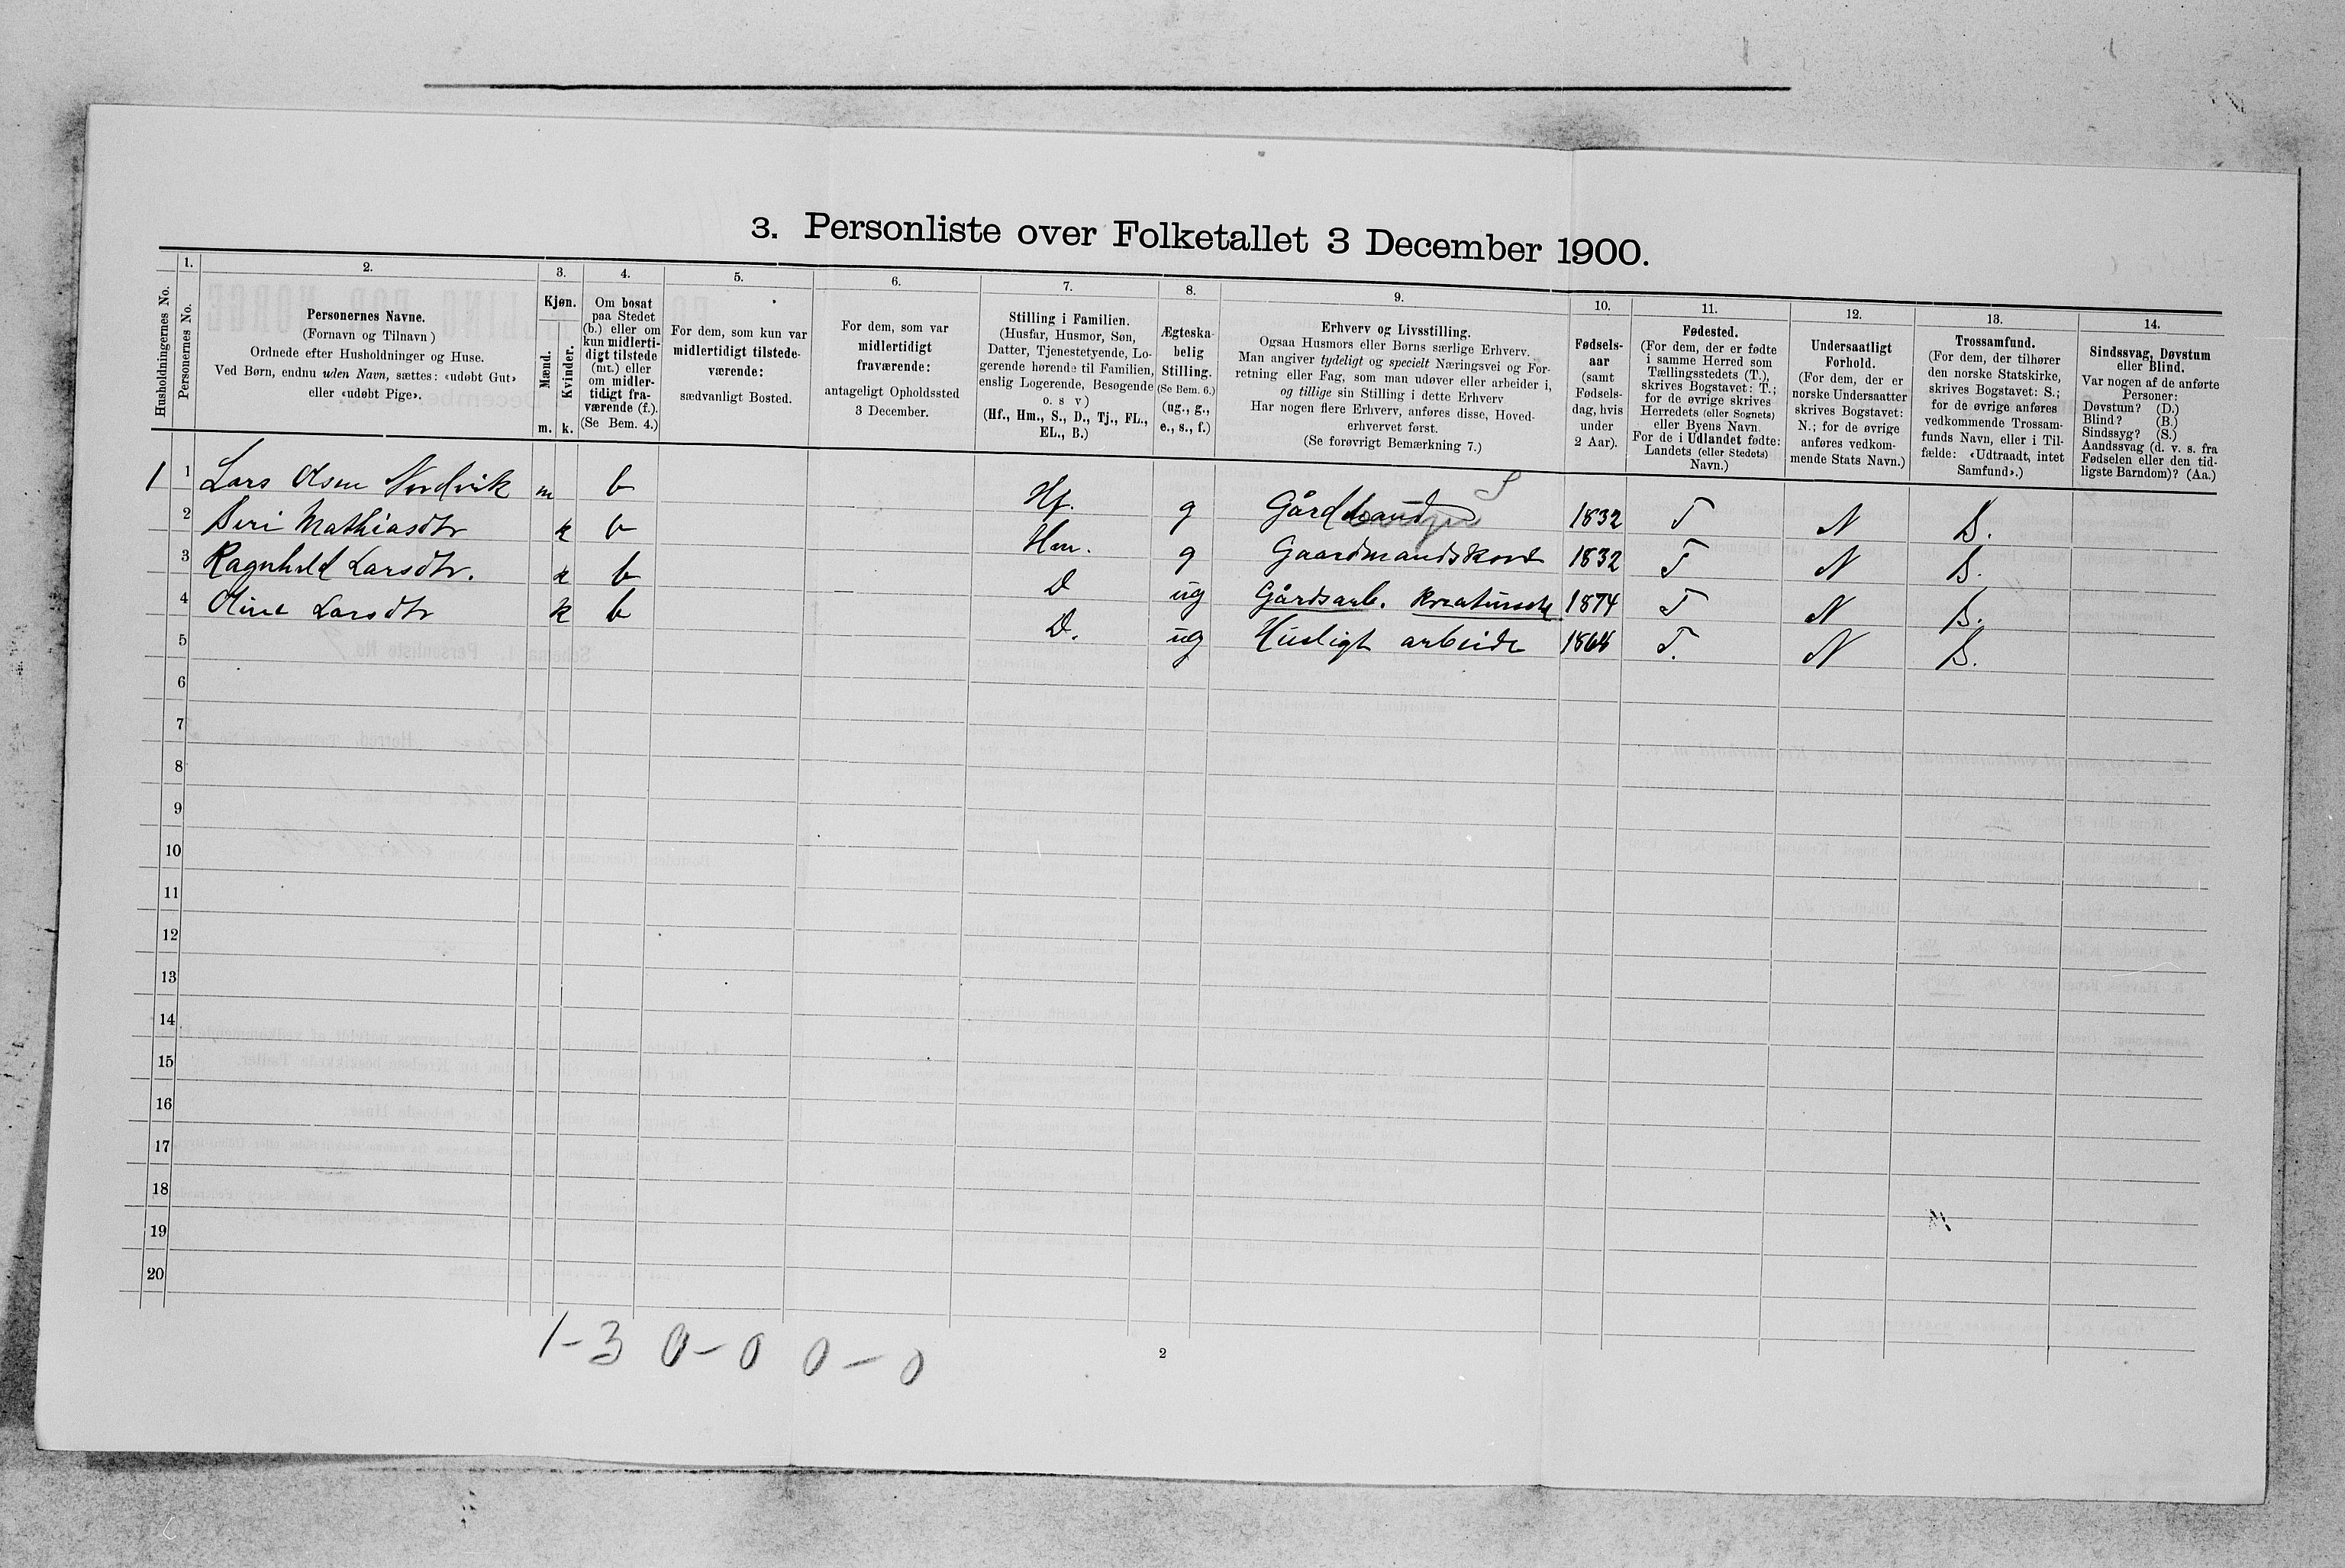 3. Personliste over Folketallet 3 December 1900.
1. 2. 3. 4. 5. 6. 7. 8. 9. 10. 11. 12. 13. 14.
Husholdningernes No.
Personernes No.
Personernes Navne.
(Fornavn og Tilnavn)
Ordnede efter Husholdninger og Huse.
Ved Børn, endnu uden Navn, sættes: «udøbt Gut»
eller «udøbt Pige».
Kjøn.
Mænd.
Kvinder.
m. k.
Om bosat
paa Stedet
(b.) eller om
kun midlerti-
digt tilstede
(mt.) eller
om midler-
tidigt fra-
værende (f.).
(Se Bem. 4.)
For dem, som kun var
midlertidigt tilstede-
værende:
sædvanligt Bosted.
For dem, som var
midlertidigt
fraværende:
antageligt Opholdssted
3 December.
Stilling i Familien.
(Husfar, Husmor, Søn,
Datter, Tjenestetyende, Lo-
gerende hørende til Familien,
enslig Logerende, Besøgende
o. s v)
(Hf., Hm., S., D., Tj., FL.,
EL., B.)
Ægteska-
belig
Stilling.
(Se Bem. 6.)
(ug., g.,
e., s., f.)
Erhverv og Livsstilling.
Ogsaa Husmors eller Børns særlige Erhverv.
Man angiver tydeligt og specielt Næringsvei og For-
retning eller Fag, som man udøver eller arbeider i,
og tillige sin Stilling i dette Erhverv
Har nogen flere Erhverv, anføres disse, Hoved-
erhvervet først.
(Se forøvrigt Bemærkning 7.)
Fødsels-
aar
(samt
Fødsels-
dag, hvis
under
2 Aar).
Fødested.
(For dem, der er fødte
i samme Herred som
Tællingsstedets (T.),
skrives Bogstavet: T.;
for de øvrige skrives
Herredets (eller Sognets)
eller Byens Navn.
For de i Udlandet fødte:
Landets (eller Stedets)
Navn.)
Undersaatligt
Forhold.
(For dem, der er
norske Undersaatter
skrives Bogstavet:
N.; for de øvrige
anføres vedkom-
mende Stats Navn.)
Trossamfund.
(For dem, der tilhører
den norske Statskirke,
skrives Bogstavet: S.;
for de øvrige anføres
vedkommende Trossam-
funds Navn, eller i Til-
fælde: «Udtraadt, intet
Samfund».)
Sindssvag, Døvstum
eller Blind.
Var nogen af de anførte
Personer:
Døvstum? (D.)
Blind? (B.)
Sindssyg? (S.)
Aandssvag (d. v. s. fra
Fødselen eller den tid-
ligste Barndom)? (Aa.)
1 1 Lars Olsen Nordvik m b Hf. g Gårdmand S 1832 T N S.
2 Siri Mathiasdtr k b Hm. g Gaardmandskone 1832 T N S.
3 Ragnhild Larsdtr. k b D ug Gårdsarb. kreaturstel 1874 T N S.
4 Oline Larsdtr k b D. ug Husligt arbeide 1864 T. N S.
5
6
7
8
9
10
11
12
13
14
15
16
17
18
19
20
1-3 0-0 0-0
2